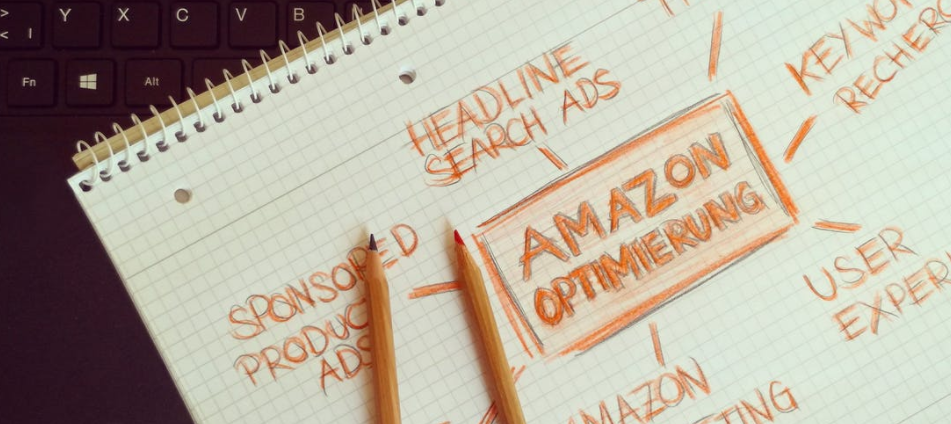 Y X C V B
< |
Fn Alt
HEADLINE
SEARCH ADS
AMAZON
OPTIMIERUNG
SPONSORED
PRODUCT
ADS
USER
RECHER
AMAZON